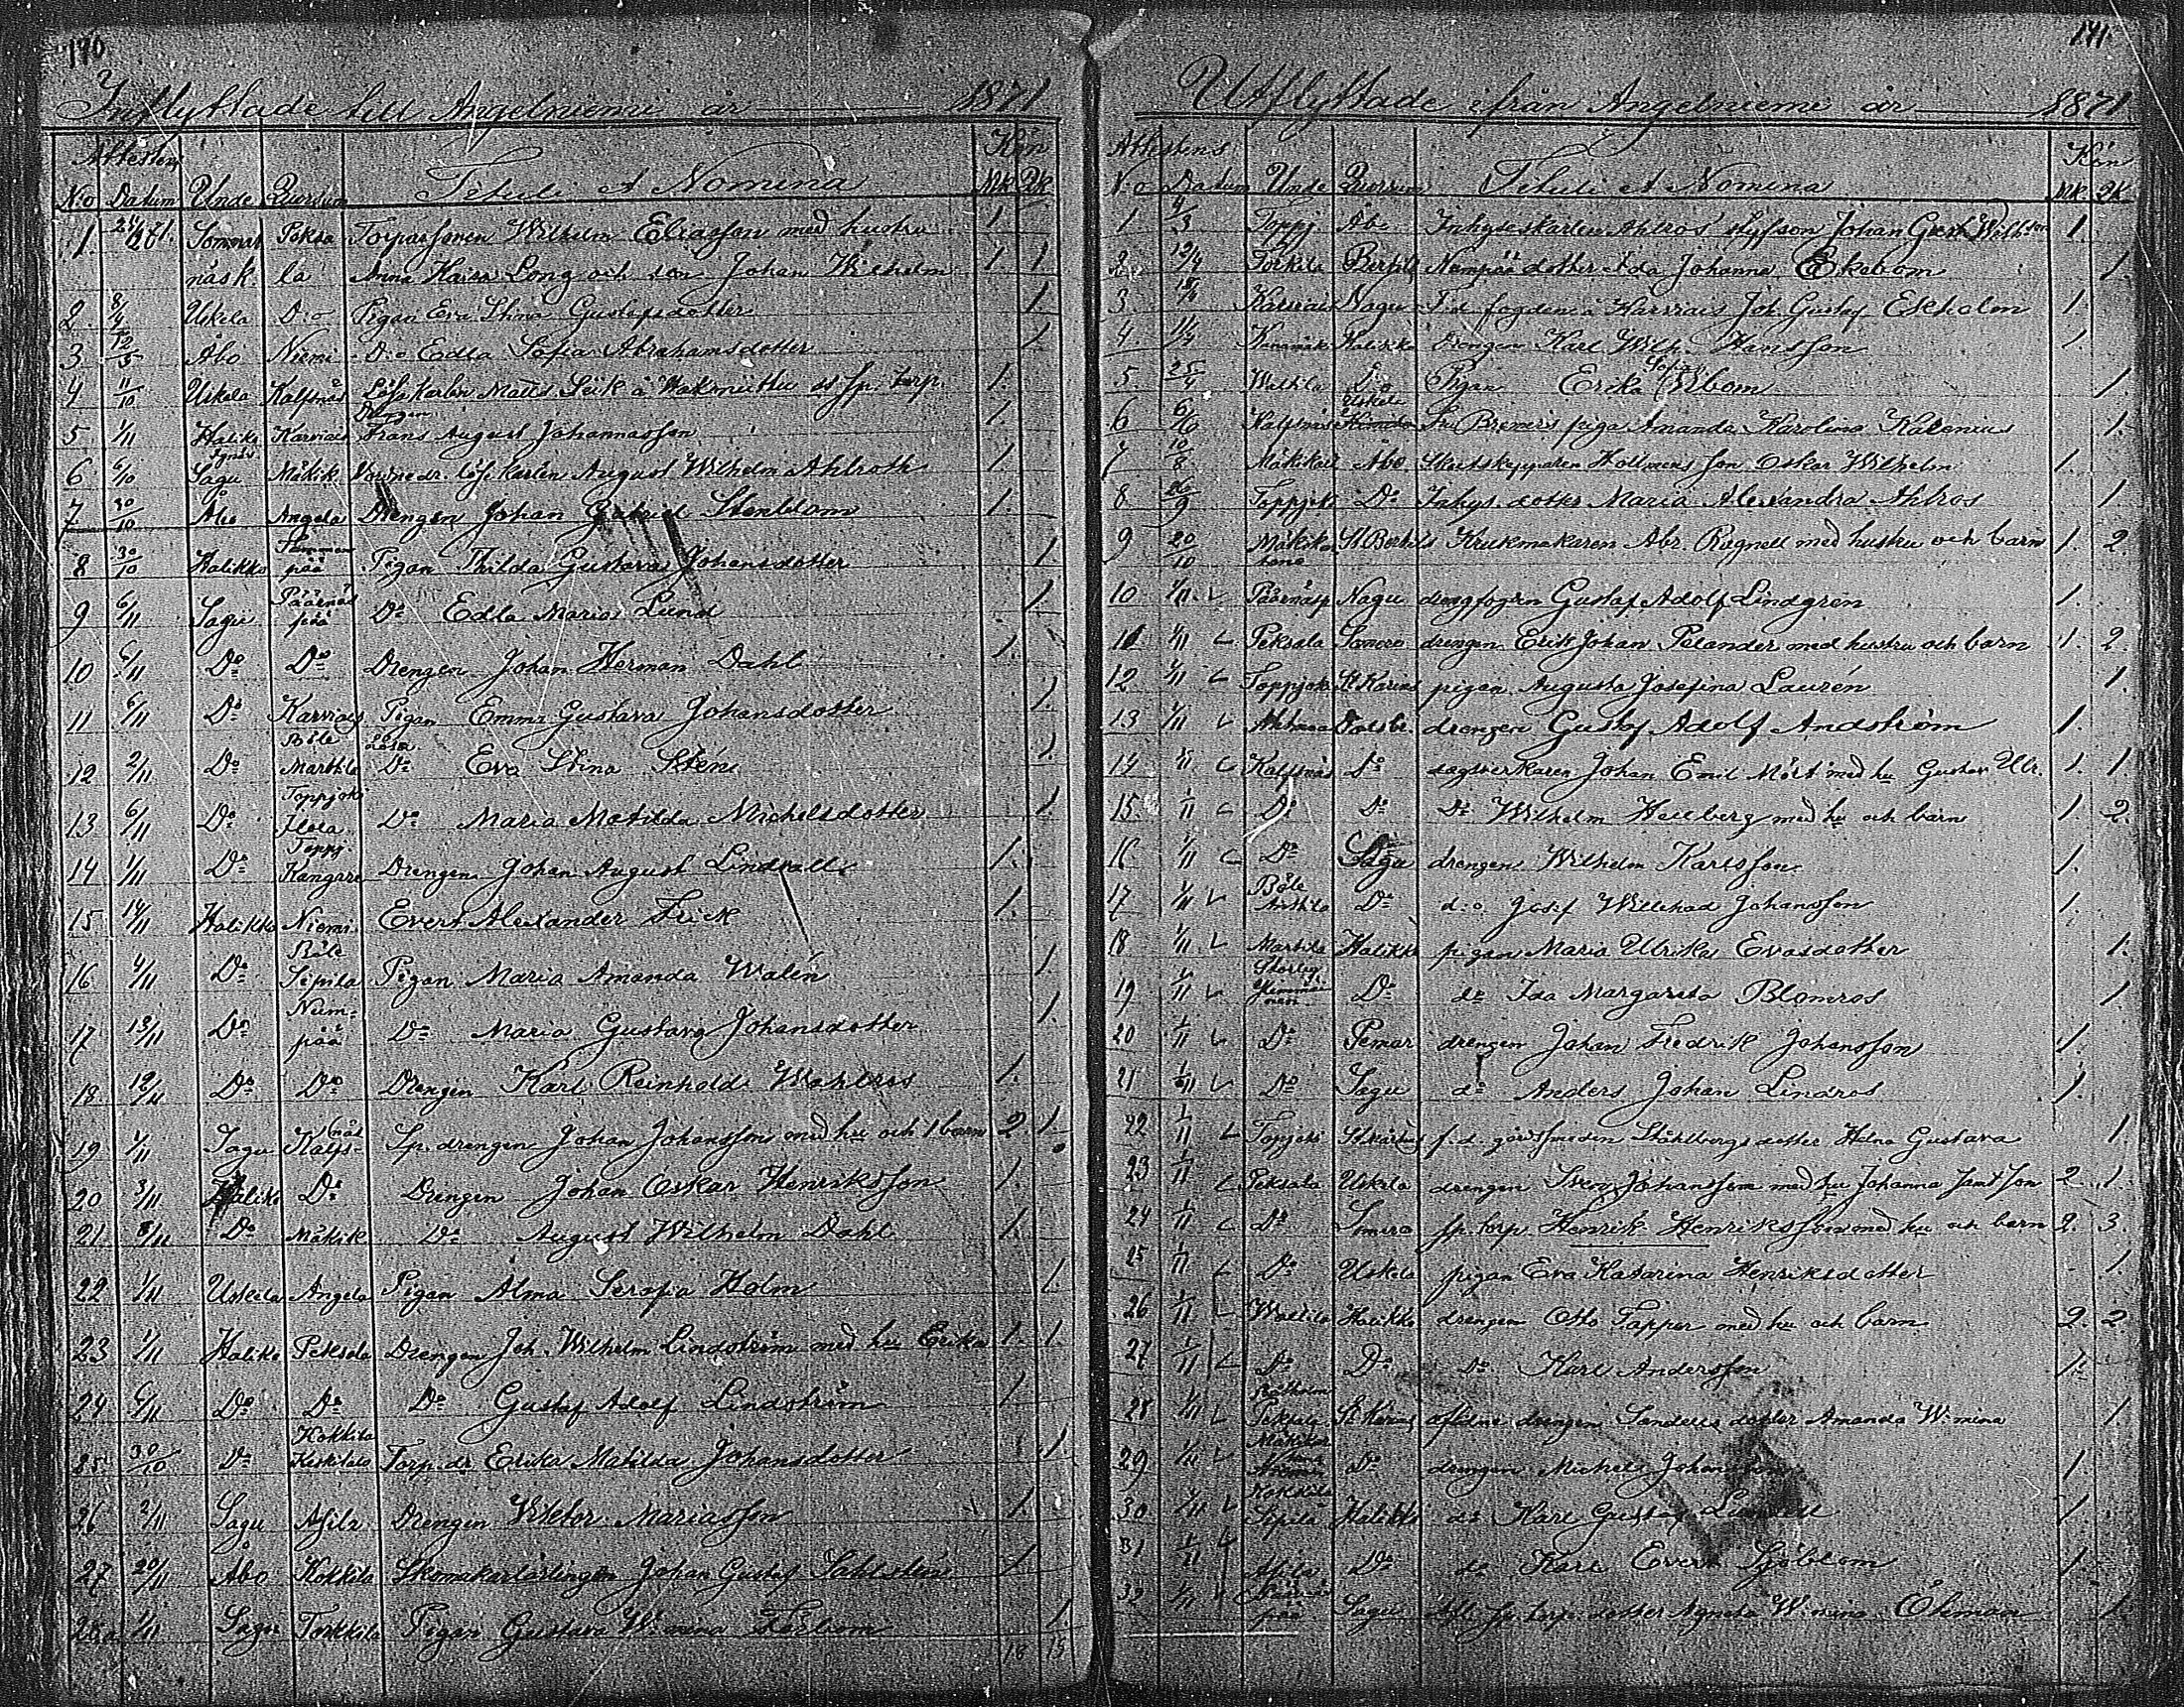 170
Inflyttade till Angelniemi år 1871
Attestens Kön
No Datum Unde Quorsum Tituli et Nomina Mk. Qk.
1 Somer Peksa Torparsonen Wilhelm Eliasson med hustru 1.
näs k. la Anna Kaisa Long och son Johan Wilhelm 1. 1
2 8/4 Uskela D:o Pigan Eva Stina Gustafsdotter 1.
3 12/5 Åbo Niemi D:o Edla Sofia Abrahamsdotter 1
4 11/10 Uskela Kalfsnäs Löskarlen Matts 1.
Drengen
5 1/11 Haliko Karviais Frans August Johannesson 1.
6 6/10 Sagu Mäkik. löskarlen August Wilhelm Ahlroth 1.
7 30/10 Åbo Angela Drengen Johan Gabriel Stenblom 1.
8 30/10 Halikko pää Pigan Thilda Gustava Johansdotter 1.
9 6/11 Sagu Päärnäs pää Do Edla Maria Lund 1.
10 6/11 Do Do Drengen Johan Herman Dahl 1.
11 6/11 Do Karviais Pigan Emma Gustava Johansdotter 1.
12 2/11 Do Böle Marttila Do Eva Stina Stén 1.
13 6/11 Do Toppjoki Do Maria Matilda Michelsdotter 1.
14 1/11 Do Toppj. Kangare Drengen Johan August Lindvall 1.
15 14/11 Halikko Niemi Evert Alexander Frick 1.
16 4/11 Do Böle Sipila Pigan Maria Amanda Walén 1.
17 13/11 Do Num- pää Do Maria Gustava Johansdotter 1.
18 12/11 Do Do Drengen Karl Reinhold Wahlros 1.
19 1/11 Sagu Kalfs- näs Sp. drengen Johan Johansson med hu och 1 barn 2 1.
20 3/11 Haliko Do Drengen Johan Oskar Henriksson 1.
21 8/11 Do Mäkik Do August Wilhelm Dahl 1.
22 1/11 Uskela Angela Pigan Alma Serafia Holm 1
23 1/11 Haliko Peksala Drengen Joh. Wilhelm Lindström med hu Erika 1. 1.
24 6/11 Do Do Do Gustaf Adolf Lindström 1.
25 30/10 Do Kokkila Keskitalo Torp. dr. Erika Matilda Johansdotter 1.
26 2/11 Sagu Asila Drengen Viktor Mariasson 1.
27 20/11 Åbo Kokkila Skomakarlärlingen Johan Gustaf Sahlstén 1
28 1/11 Sagu Torkkila Pigan Gustava W:mina Färbom 1.
18 19
171
Utflyttade ifrån Angelniemi år 1871
Attestens Kön
No Datum Unde Quorsum Tituli et Nomina Mk. Qk.
1. 4/3 Toppj. Åbo Inhyseskarlen Ahlros styfson Johan Gust Wilh:son 1.
2. 12/4 Torkila Bertils Numpää dotter Ida Johanna Ekebom 1.
3. Karviais Nagu F.d. fogden å Karviais Joh. Gustaf Ekholm 1.
4. Halikko Drengen Karl Wilh. Hansson 1
5 25/4 Waltila D:o Pigan Erika Sofia Elbom 1.
6 6/10 Kalfsnäs Kimito Fru Bremers piga Amanda Karolina Kalenius 1.
7 10/8 Mäkikall Åbo Skutskepparen Hollmens son Oskar Wilhelm 1.
8 Toppjoki Do Inhys. dotter Maria Alexandra Ahlros 1
9 20/10 St Bertils Krukmakaren Abr. Rugnell med hustru och barn 1. 2.
10 1/11 Päärnäsp Nagu drengfogden Gustaf Adolf Lindgrén 1.
11 1/11 Peksala Somero drengen Erik Johan Pelander med hustru och barn 1. 2.
12 1/11 Toppjoki St Karins pigan Augusta Josefina Laurén 1.
13 1/11 drengen Gustaf Adolf Andström 1.
14 1/11 Kalfsnäs Do Johan Emil Mört med hu Gustava Ulr. 1. 1.
15. 1/11 Do Do Do Wilhelm Hellberg med hu och barn 1. 2.
16 1/11 Do Sagu drengen Wilhelm Karlsson 1.
17 1/11 Böle Do d:o Josef Willehad Johansson 1.
18 1/11 Martila Halikko pigan Maria Ulrika Evasdotter 1.
19 1/11 Do do Ida Margareta Blomros 1
20 1/11 Do Pemar drengen Johan Fredrik Johansson 1.
21 1/11 Do Sagu do Anders Johan Lindros 1.
22 1/11 Topjoki St Mårtens f.d. gårdssmeden Ståhlbergs dotter Helna Gustava 1.
23 1/11 Peksala Uskela drengen Sven Johansson med hu Johanna samt son 2 1.
24 1/11 Do Somero sp. torp. Henrik Henriksson med hu och barn 2. 3.
25 1/11 Do Uskela pigan Eva Katarina Henriksdotter 1
26 1/11 Waltila Halikko drengen Otto Tapper med hu och barn 2. 2.
27 1/11 Do Do Do Karl Andersson 1.
28 1/11 Peksala St Karins aflidne drengen Sandells dotter Amanda W:mina 1
29 1/11 Do drengen Michel Johansson 1
30 1/11 Kokkila Sipila Halikko do Karl Gustaf Lundell 1
31 1/11 Asila Do do Karl Evert Sjöblom 1.
32 1/11 Päärnäs pää Sagu Afl. sp. torp. dotter Agneta W:mina Öhman 1.